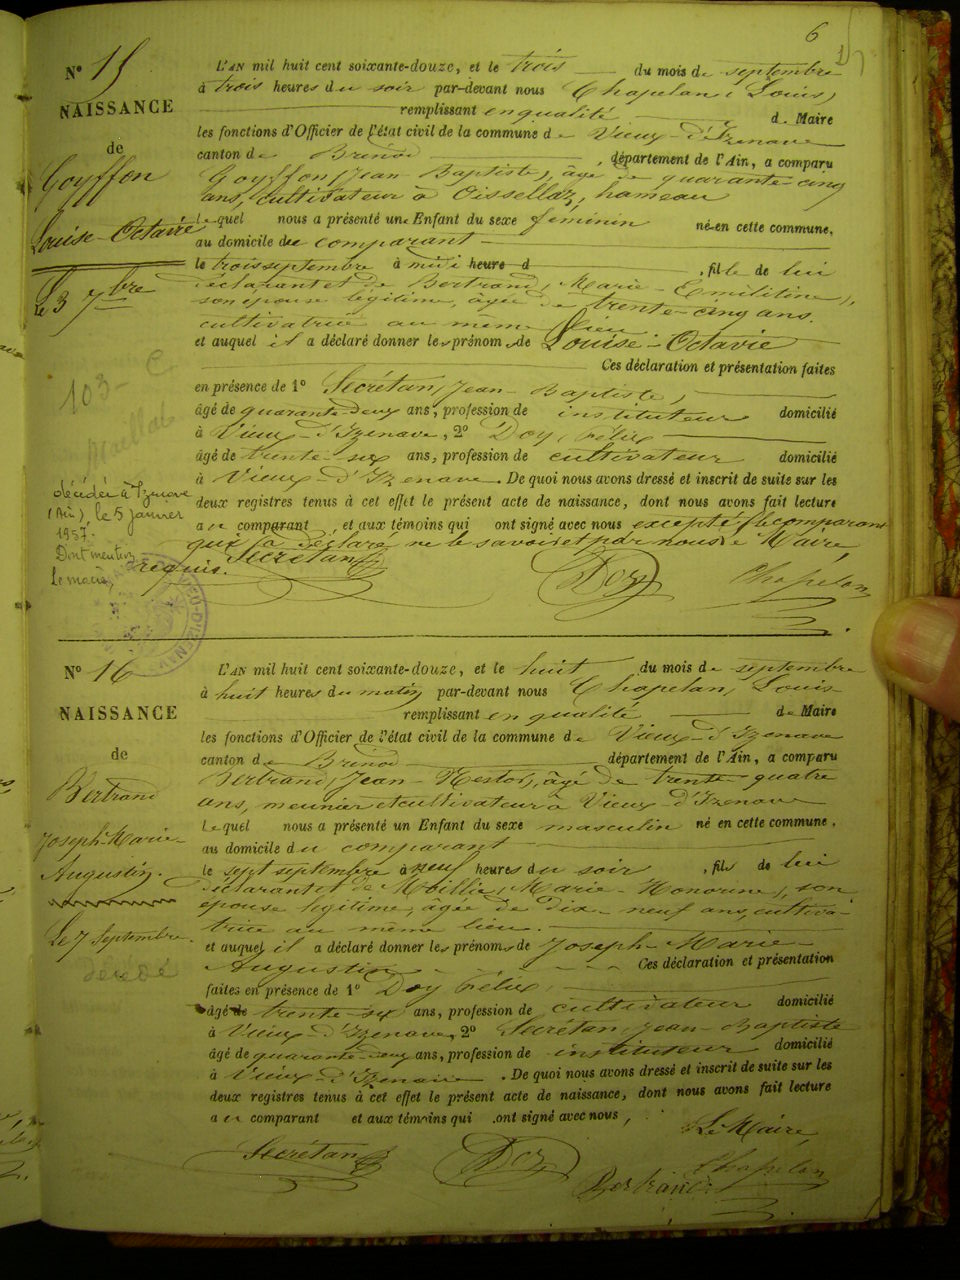 6
15
N° 15
NAISSANCE
de
Goyffon
Louise-Octavie
Le 3 7bre
103 - C
décédée à Izenave
(Ain) le 5 janvier
1957.
Dont mention
Le maire,
L'AN mil huit cent soixante-douze, et le trois du mois de septembre
à trois heures du soir par-devant nous Chapelan, Louis,
remplissant en qualité de Maire
les fonctions d'Officier de l'état civil de la commune de Vieux-d'Izenave
canton de Brénod, département de l'Ain, a comparu
Goyffon, Jean-Baptiste, âgé de quarante-cinq
ans, cultivateur à Oisselaz, hameau
lequel nous a présenté un Enfant du sexe féminin né en cette commune,
au domicile du comparant
le trois septembre à midi heure d, fille de lui
déclarant et de Bertrand, Marie-Emilitine,
son épouse légitime, âgée de trente-cinq ans,
cultivatrice au même lieu
et auquel il a déclaré donner les prénoms de Louise-Octavie
Ces déclaration et présentation faites
en présence de 1° Secrétan, Jean-Baptiste,
âgé de quarante-deux ans, profession de instituteur domicilié
à Vieux-d'Izenave, 2° Doy, Félix
âgé de trente-six ans, profession de cultivateur domicilié
à Vieux-d'Izenave. De quoi nous avons dressé et inscrit de suite sur les
deux registres tenus à cet effet le présent acte de naissance, dont nous avons fait lecture
au comparant, et aux témoins qui ont signé avec nous excepté le comparant
qui a déclaré ne le savoir et par nous le Maire,
requis.
Secrétan Doy Chapelan
N° 16
NAISSANCE
de
Bertrand
Joseph-Marie-
Augustin.
Le 7 Septembre.
décédé
L'AN mil huit cent soixante-douze, et le huit du mois de septembre
à huit heures du matin par-devant nous Chapelan, Louis
remplissant en qualité de Maire
les fonctions d'Officier de l'état civil de la commune de Vieux-d'Izenave
canton de Brénod département de l'Ain, a comparu
Bertrand, Jean-Nestor, âgé de trente-quatre
ans, meunier et cultivateur à Vieux-d'Izenave
lequel nous a présenté un Enfant du sexe masculin né en cette commune,
au domicile du comparant
le sept septembre à neuf heures du soir, fils de lui
déclarant et de Marie-Honorine, son
épouse légitime, âgée de dix-neuf ans, cultiva-
trice au même lieu.
et auquel il a déclaré donner les prénoms de Joseph-Marie-
Augustin Ces déclaration et présentation
faites en présence de 1° Doy Félix,
âgé de trente-six ans, profession de cultivateur domicilié
à Vieux-d'Izenave, 2° Secrétan, Jean-Baptiste
âgé de quarante-deux ans, profession de instituteur domicilié
à Vieux-d'Izenave. De quoi nous avons dressé et inscrit de suite sur les
deux registres tenus à cet effet le présent acte de naissance, dont nous avons fait lecture
au comparant et aux témoins qui ont signé avec nous,
Le Maire,
Secrétan Doy Bertrand Chapelan